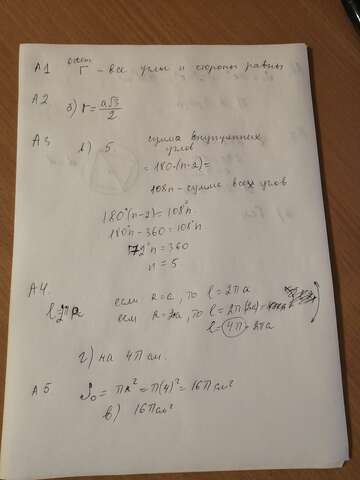 ответ
А1 Г - все углы и стороны равны
А2 в) r = a√3/2
А3 б) 5 сумма внутренних
углов
= 180·(n-2) =
108n - сумма всех углов
180°(n-2) = 108°n
180°n - 360 = 108°n
72°n = 360
n = 5
А4. если R = a, то l = 2πa
l = 2πR если R = 2a, то l = 2π(2a) =
l = 4π - 2πa
г) на 4π см.
А5 S₀ = πR² = π(4)² = 16π см²
в) 16π см²